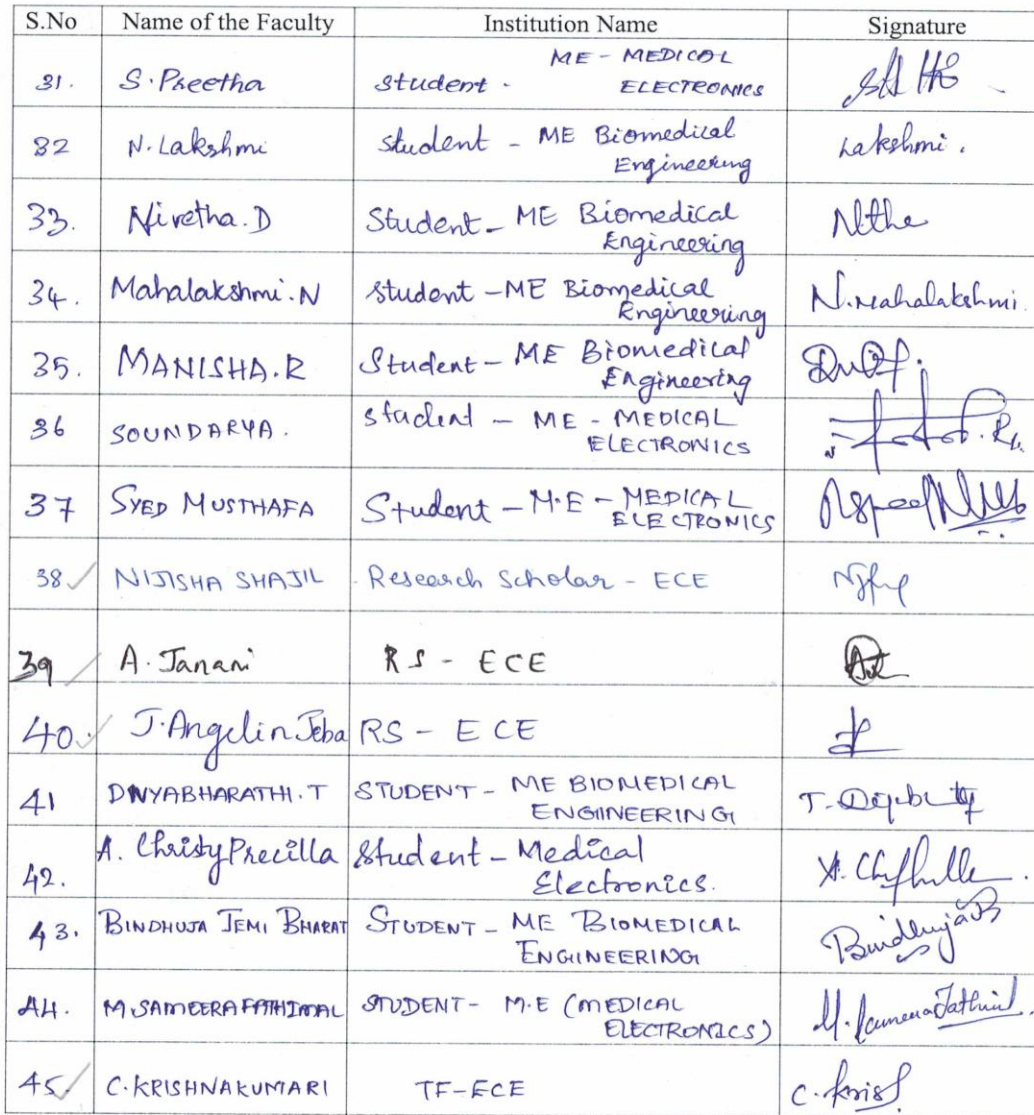 S.No Name of the Faculty Institution Name Signature
31. S. Preetha Student - ME - MEDICAL
ELECTRONICS
32 N. Lakshmi Student - ME Biomedical
Engineering Lakshmi.
33. Nivetha. D Student - ME Biomedical
Engineering
34. Mahalakshmi. N Student - ME Biomedical
Engineering N. Mahalakshmi
35. MANISHA. R Student - ME Biomedical
Engineering
36 SOUNDARYA. Student - ME - MEDICAL
ELECTRONICS
37 SYED MUSTHAFA Student - M.E - MEDICAL
ELECTRONICS
38 NIJISHA SHAJIL Research Scholar - ECE
39 A. Janani RS - ECE
40. J. Angelin Jeba RS - ECE
41 DIVYABHARATHI. T STUDENT - ME BIOMEDICAL
ENGINEERING
42. A. Christy Precilla Student - Medical
Electronics.
43. BINDHUJA JEMI BHARAT STUDENT - ME BIOMEDICAL
ENGINEERING
44. M. SAMEERA FATHIMAL STUDENT - M.E (MEDICAL
ELECTRONICS)
45 C. KRISHNAKUMARI TF-ECE